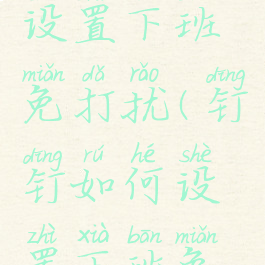 设置下班
miǎn dǎ rǎo dīng
免打扰(钉
dīng rú hé shè
钉如何设
zhì xià bān miǎn
置下班免